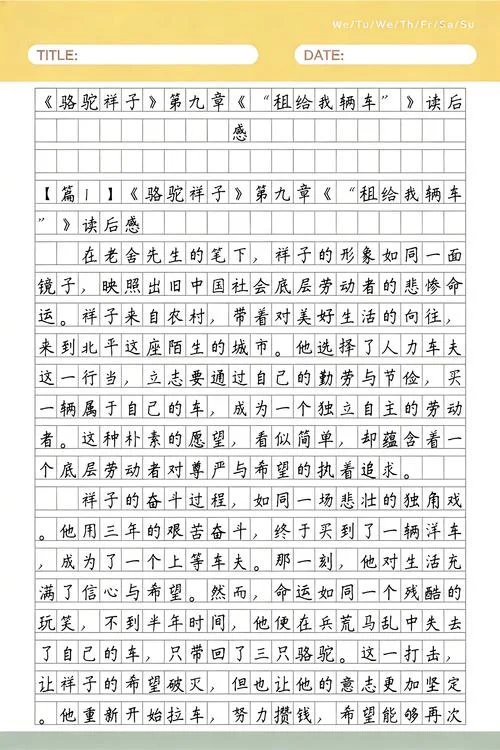 We/Tu/We/Th/Fr/Sa/Su
TITLE: DATE:
《骆驼祥子》第九章《“租给我辆车”》读后
感
【篇1】《骆驼祥子》第九章《“租给我辆车
”》读后感
在老舍先生的笔下，祥子的形象如同一面
镜子，映照出旧中国社会底层劳动者的悲惨命
运。祥子来自农村，带着对美好生活的向往，
来到北平这座陌生的城市。他选择了人力车夫
这一行当，立志要通过自己的勤劳与节俭，买
一辆属于自己的车，成为一个独立自主的劳动
者。这种朴素的愿望，看似简单，却蕴含着一
个底层劳动者对尊严与希望的执着追求。
祥子的奋斗过程，如同一场悲壮的独角戏
。他用三年的艰苦奋斗，终于买到了一辆洋车
，成为了一个上等车夫。那一刻，他对生活充
满了信心与希望。然而，命运如同一个残酷的
玩笑，不到半年时间，他便在兵荒马乱中失去
了自己的车，只带回了三只骆驼。这一打击，
让祥子的希望破灭，但也让他的意志更加坚定
。他重新开始拉车，努力攒钱，希望能够再次